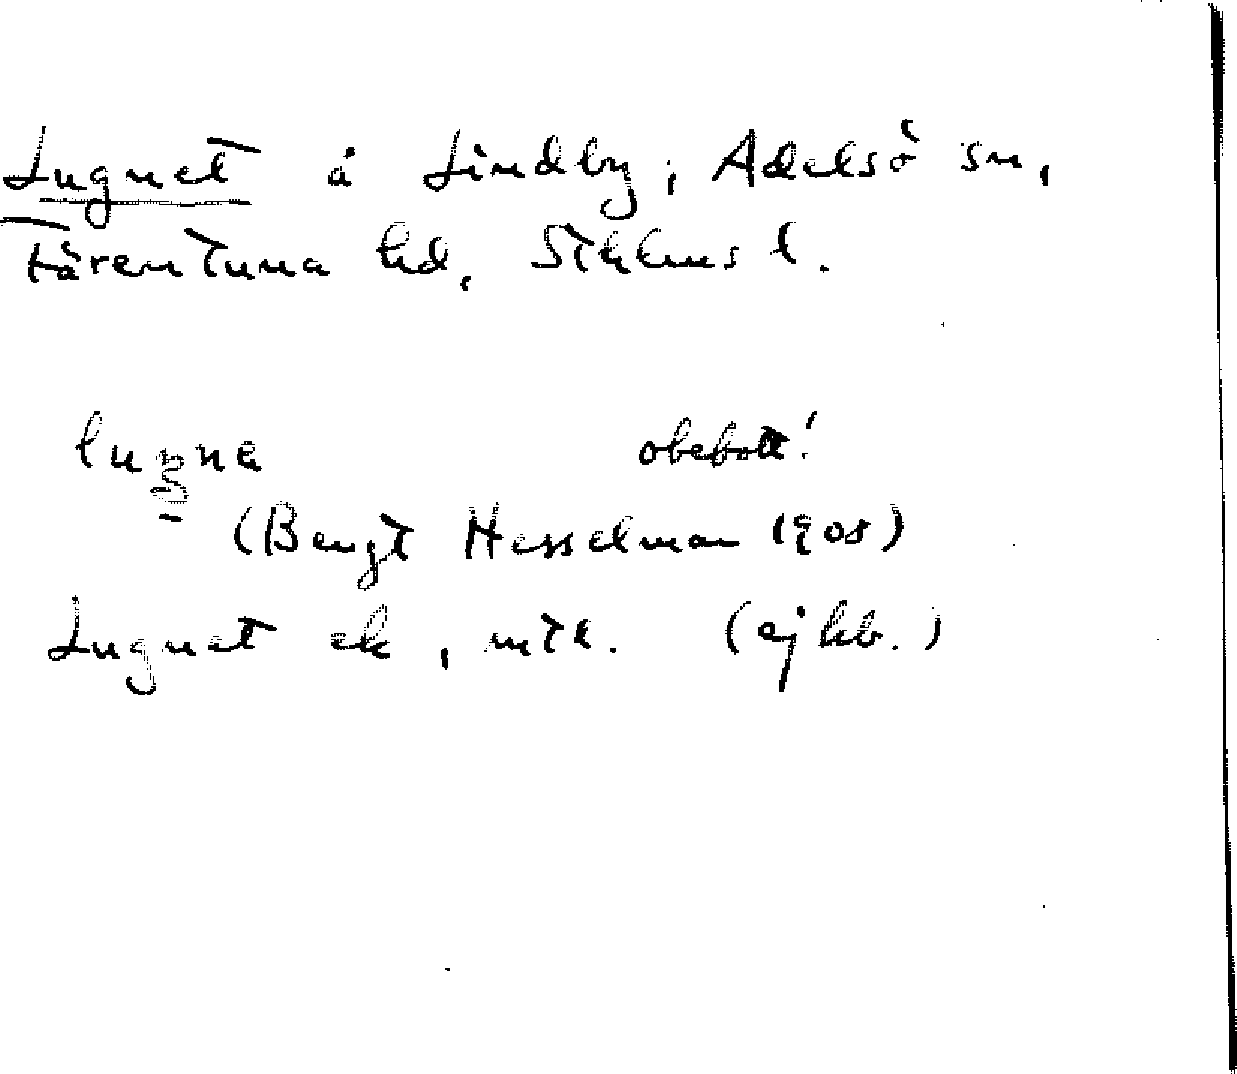 Lugnet å Lindby, Adelsö sn,
Färentuna hd, Sthlms l.
luŋna obebott!
(Bengt Hesselman 1908)
Lugnet ek, mtl. (ej hb.)